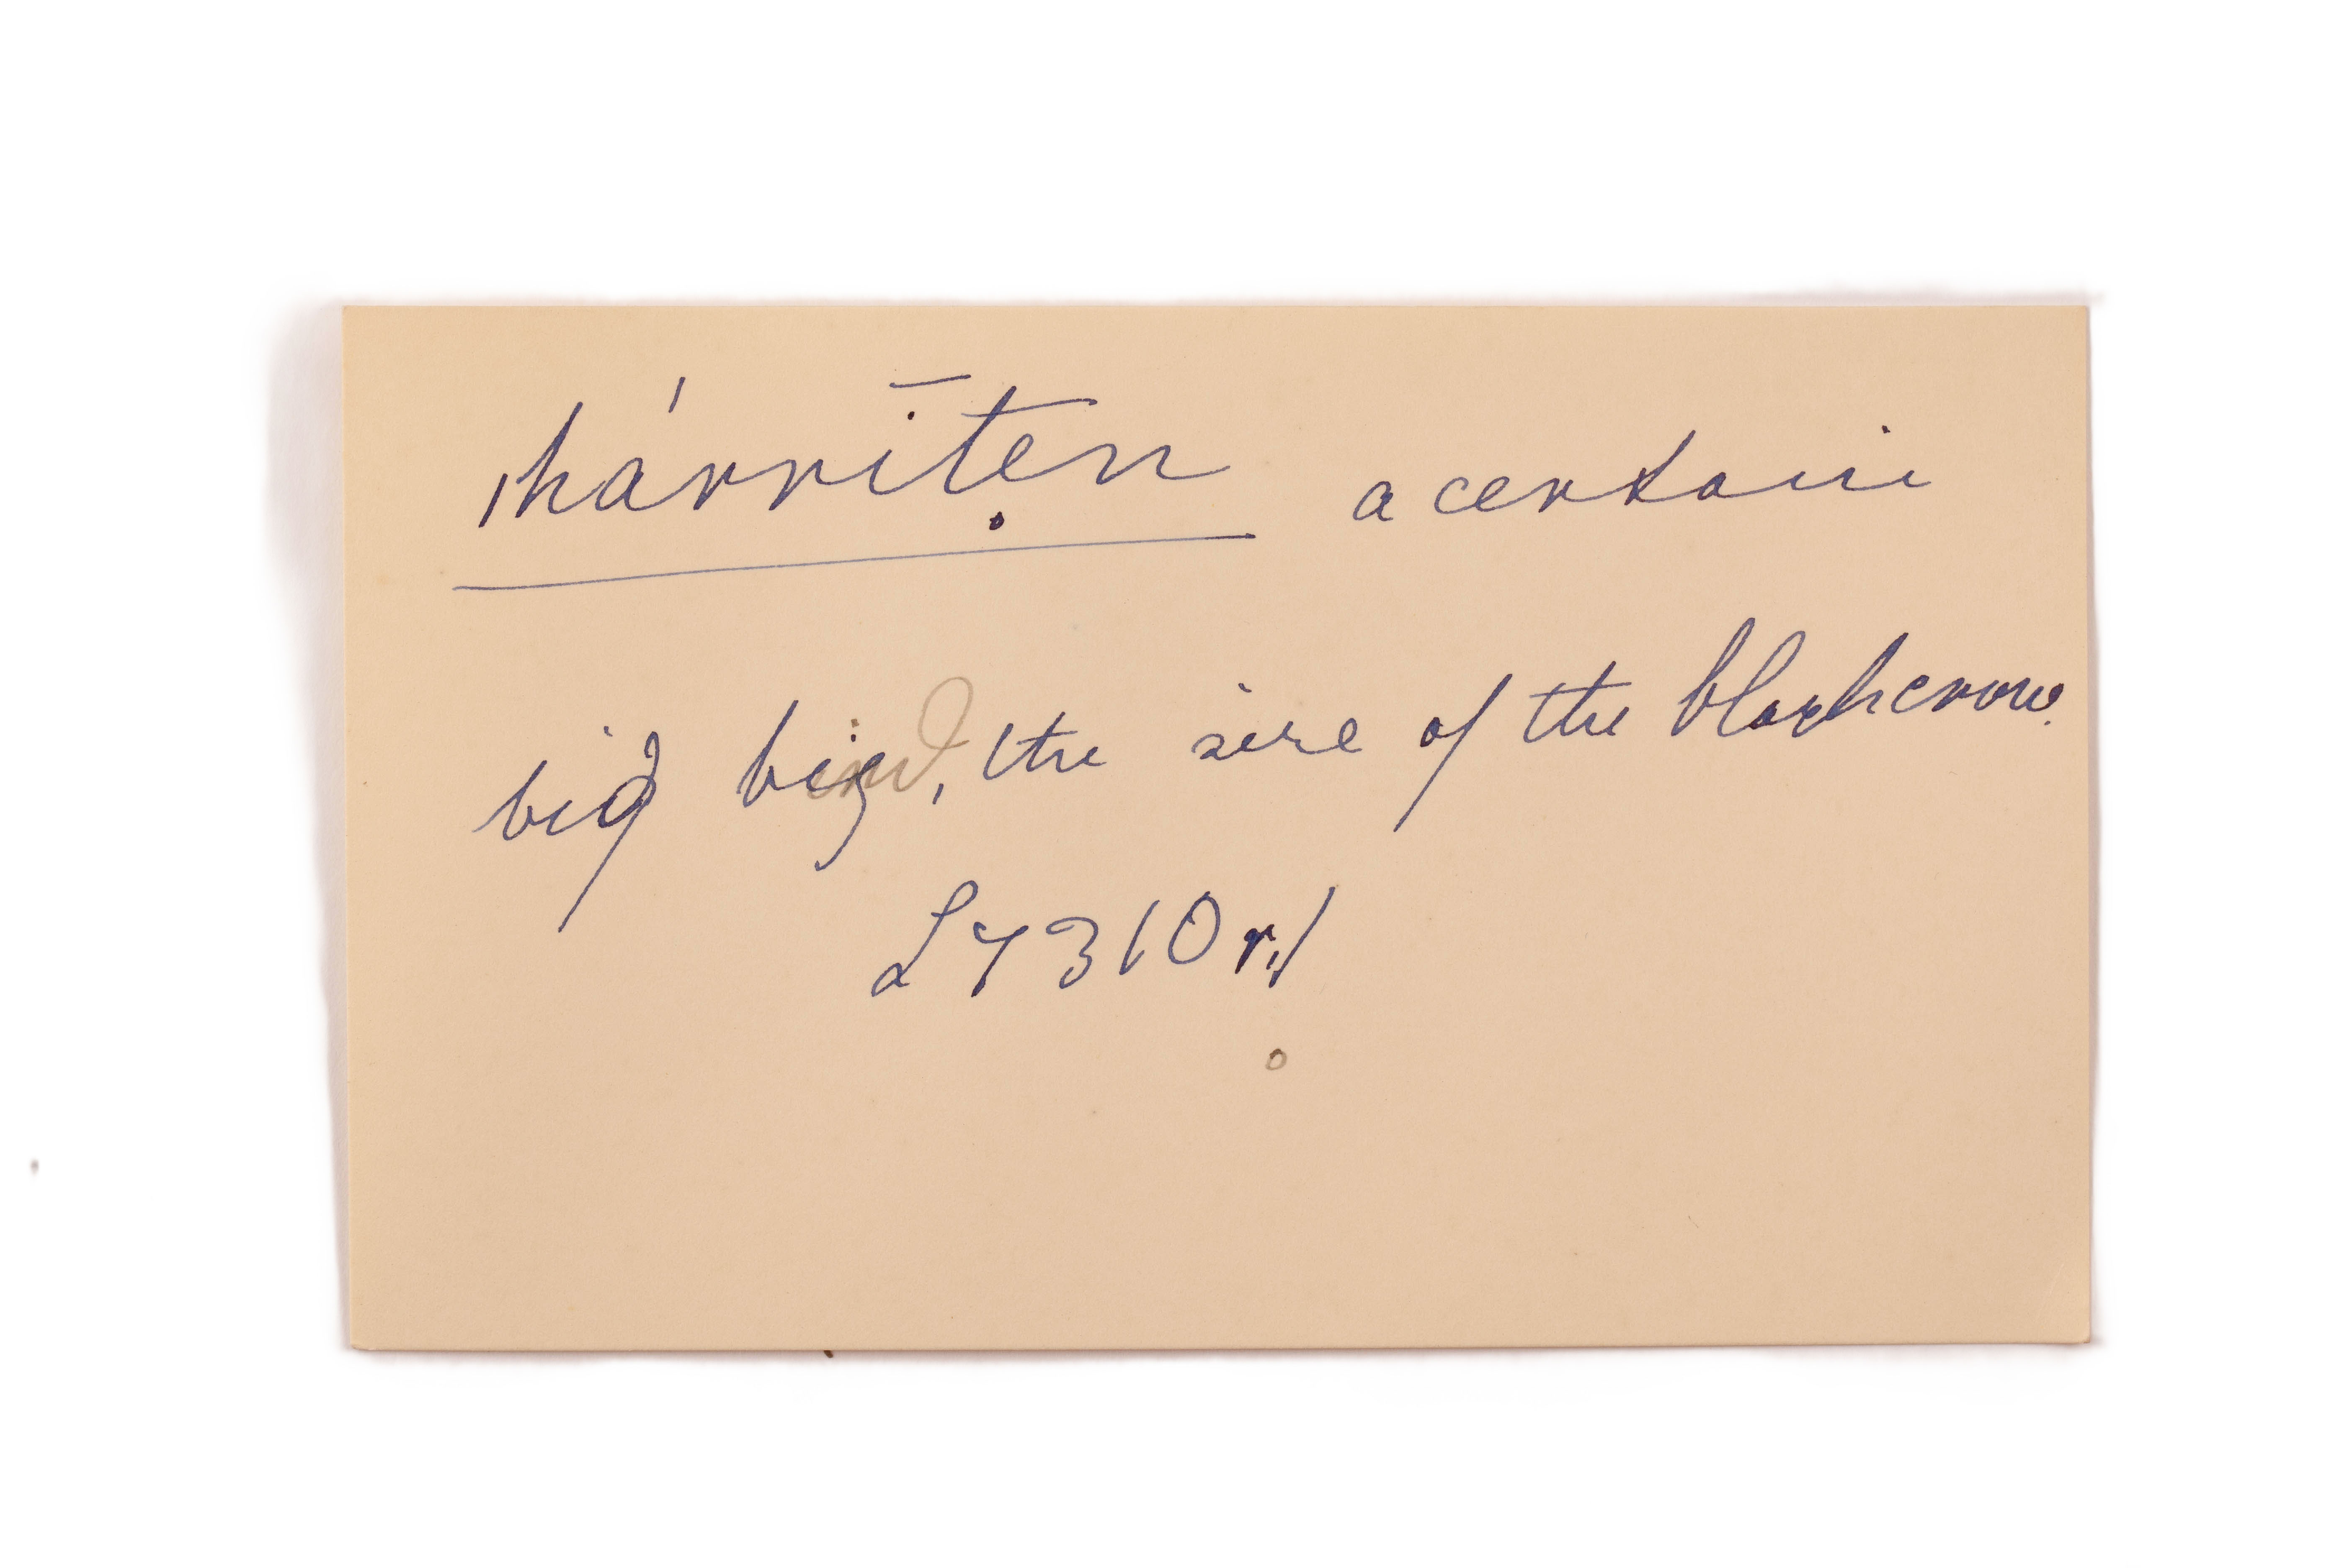 ıhárrīṭen a certain
big bird, the size of the blackcrow.
L7310r.